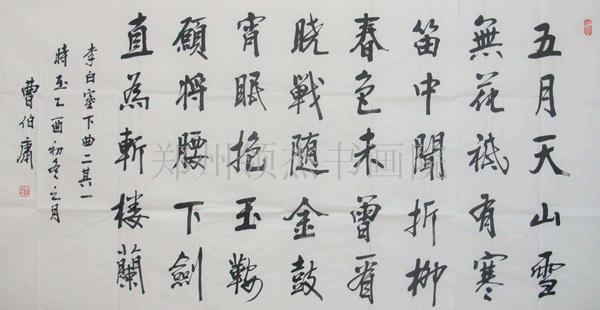 五月天山雪
無花祗有寒
笛中聞折柳
春色未曾看
曉戰隨金鼓
宵眠抱玉鞍
願將腰下劍
直為斬樓蘭
李白塞下曲二其一
時在乙酉初冬之月
曹伯庸
郑州顶杰书画院